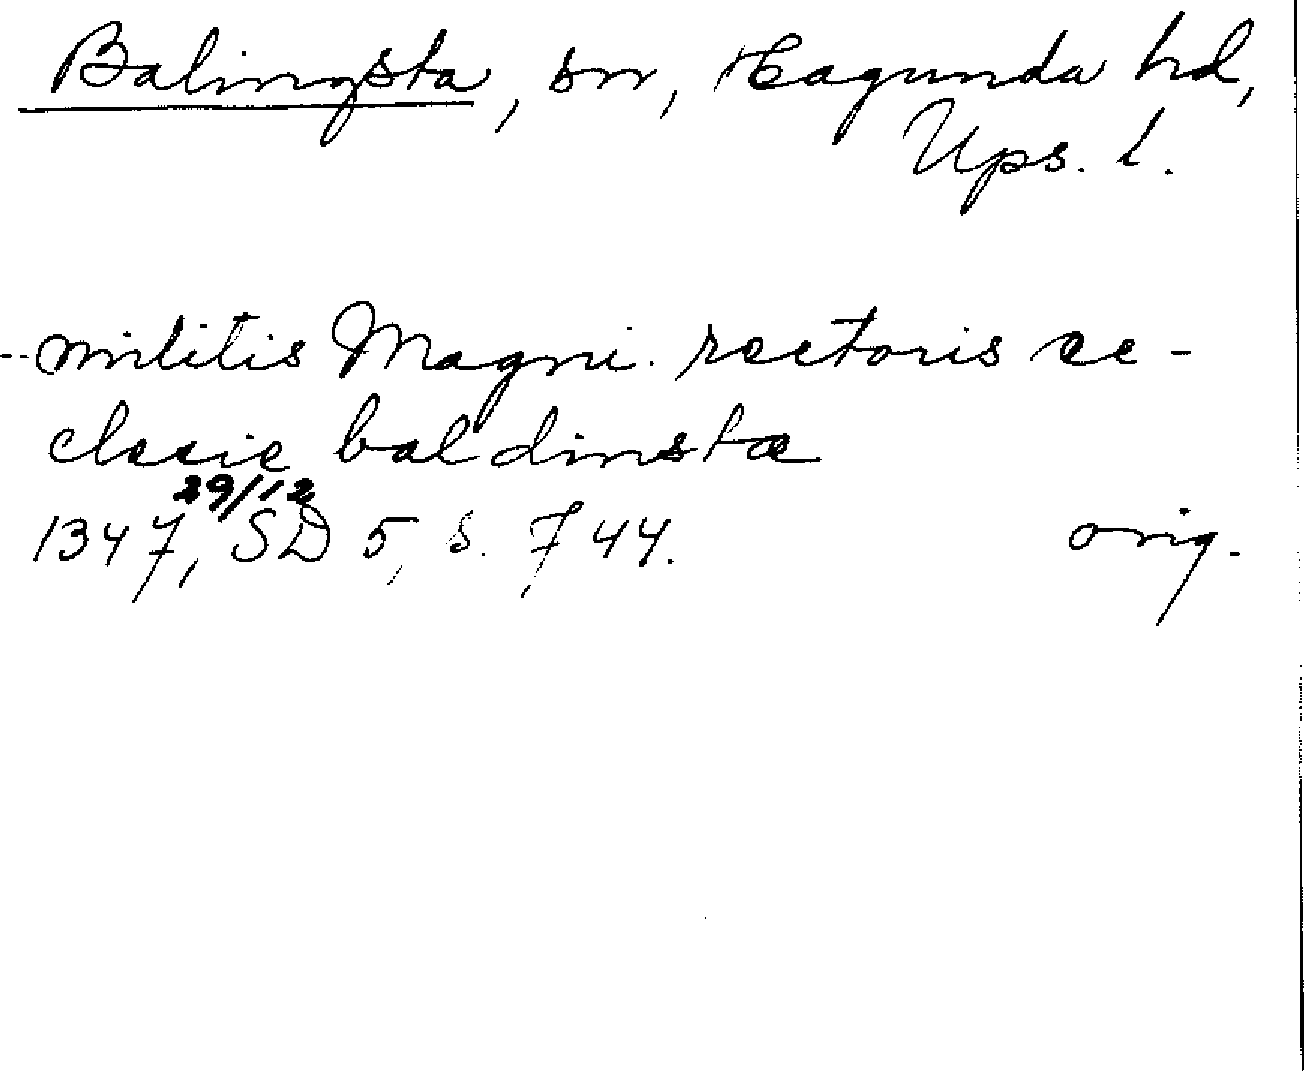 Balingsta, sn, Hagunda hd,
Ups. l.
--militis Magni. rectoris ec-
clesie baldinstæ
29/12
1347, SD 5, s. 744. orig.